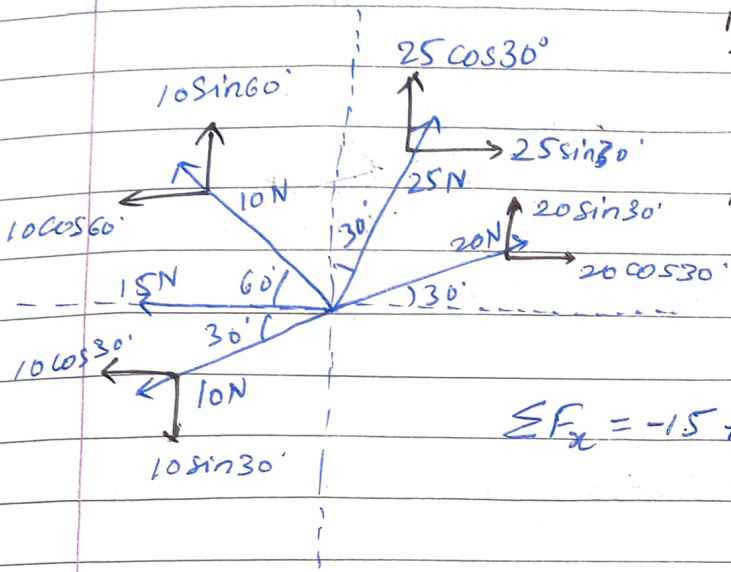 25 cos30°
10 sin60°
25 sin30°
25N
10N
20 sin30°
10 cos60°
30°
20N
20 cos30°
15N
60°
30°
30°
10 cos30°
10N
ΣFx = -15
10 sin30°